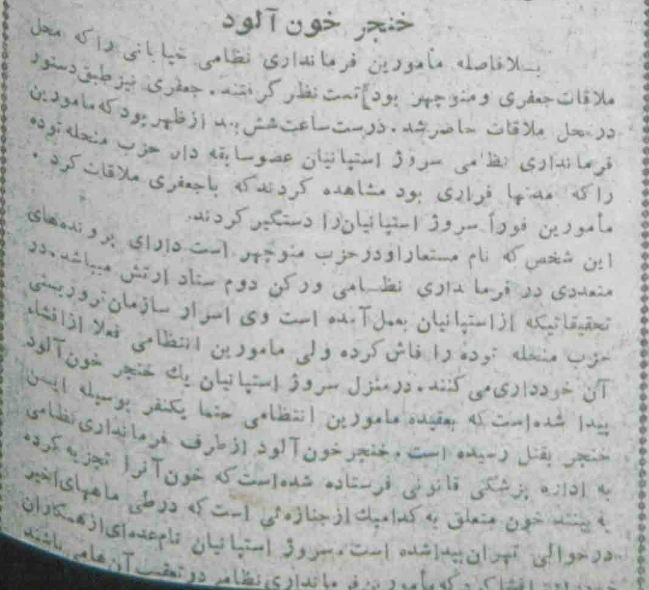 خنجر خون آلود
بلافاصله مأمورین فرمانداری نظامی خیابانی را که محل
ملاقات جعفری و منوچهر بود تحت نظر گرفتند. جعفری نیز طبق دستور
در محل ملاقات حاضر شد. درست ساعت شش بعد از ظهر بود که مامورین
فرمانداری نظامی سروژ استپانیان عضو سابقه دار حزب منحله توده
را که مدتها فراری بود مشاهده کردند که با جعفری ملاقات کرد.
مأمورین فوراً سروژ استپانیان را دستگیر کردند.
این شخص که نام مستعار او در حزب منوچهر است دارای پرونده‌های
متعددی در فرمانداری نظامی و رکن دوم ستاد ارتش میباشد. در
تحقیقاتیکه از استپانیان بعمل آمده است وی اسرار سازمان تروریستی
حزب منحله توده را فاش کرده ولی مامورین انتظامی فعلا از افشاء
آن خودداری می کنند. در منزل سروژ استپانیان یك خنجر خون آلود
پیدا شده است که بعقیده مامورین انتظامی حتما یکنفر بوسیله این
خنجر بقتل رسیده است. خنجر خون آلود از طرف فرمانداری نظامی
به اداره پزشکی قانونی فرستاده شده است که خون آنرا تجزیه کرده
به بینند خون متعلق به کدامیك از جنازه‌ئی است که در طی ماههای اخیر
در حوالی تهران پیدا شده است. سروژ استپانیان نام عده‌ای از همکاران
که مأمورین فرمانداری نظامی در تعقیب آن